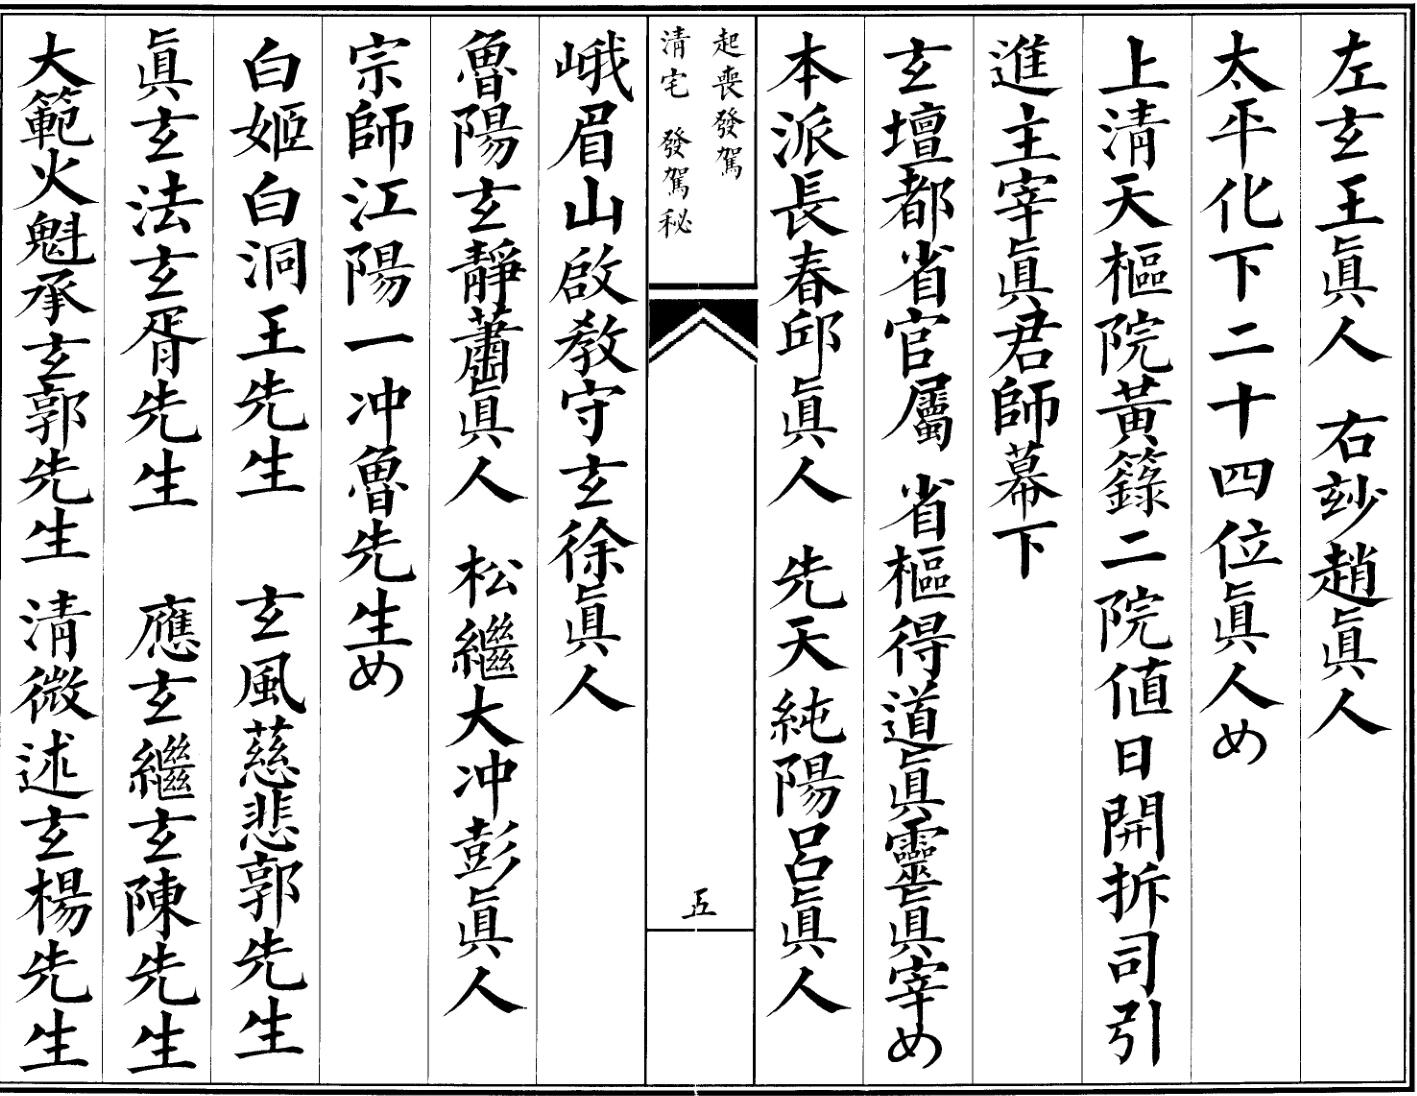 左玄王眞人　右玅趙眞人
太平化下二十四位眞人め
上淸天樞院黃籙二院値日開拆司引
進主宰眞君師幕下
玄壇都省官屬　省樞得道眞靈眞宰め
本派長春邱眞人　先天純陽呂眞人
起喪發駕
淸宅　發駕秘
五
峨眉山啟教守玄徐眞人
魯陽玄靜蕭眞人　松繼大冲彭眞人
宗師江陽一冲魯先生め
白姬白洞王先生　玄風慈悲郭先生
眞玄法玄胥先生　應玄繼玄陳先生
大範火魁承玄郭先生　淸微述玄楊先生